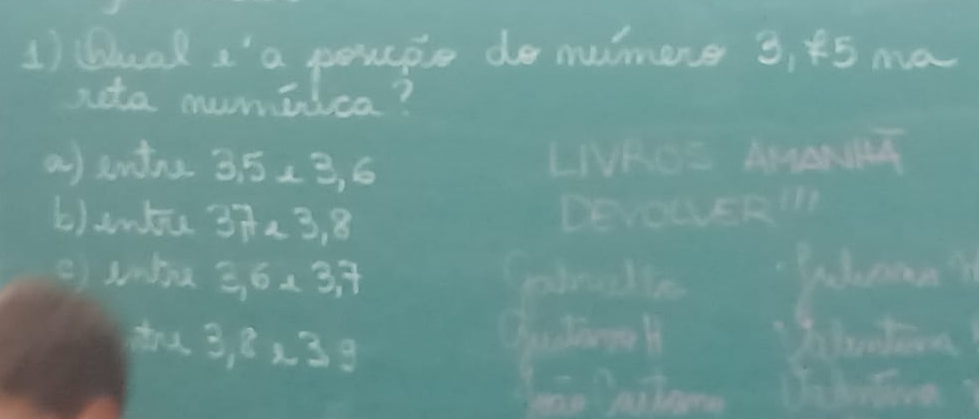 1) Qual é a posição do número 3,75 na
reta numérica?
a) entre 3,5 e 3,6
b) entre 3,7 e 3,8
c) entre 3,6 e 3,7
3,8 e 3,9
LIVROS AMANHÃ
DEVOLVER!!!
Gustavo H
João
Valentina
Valentina